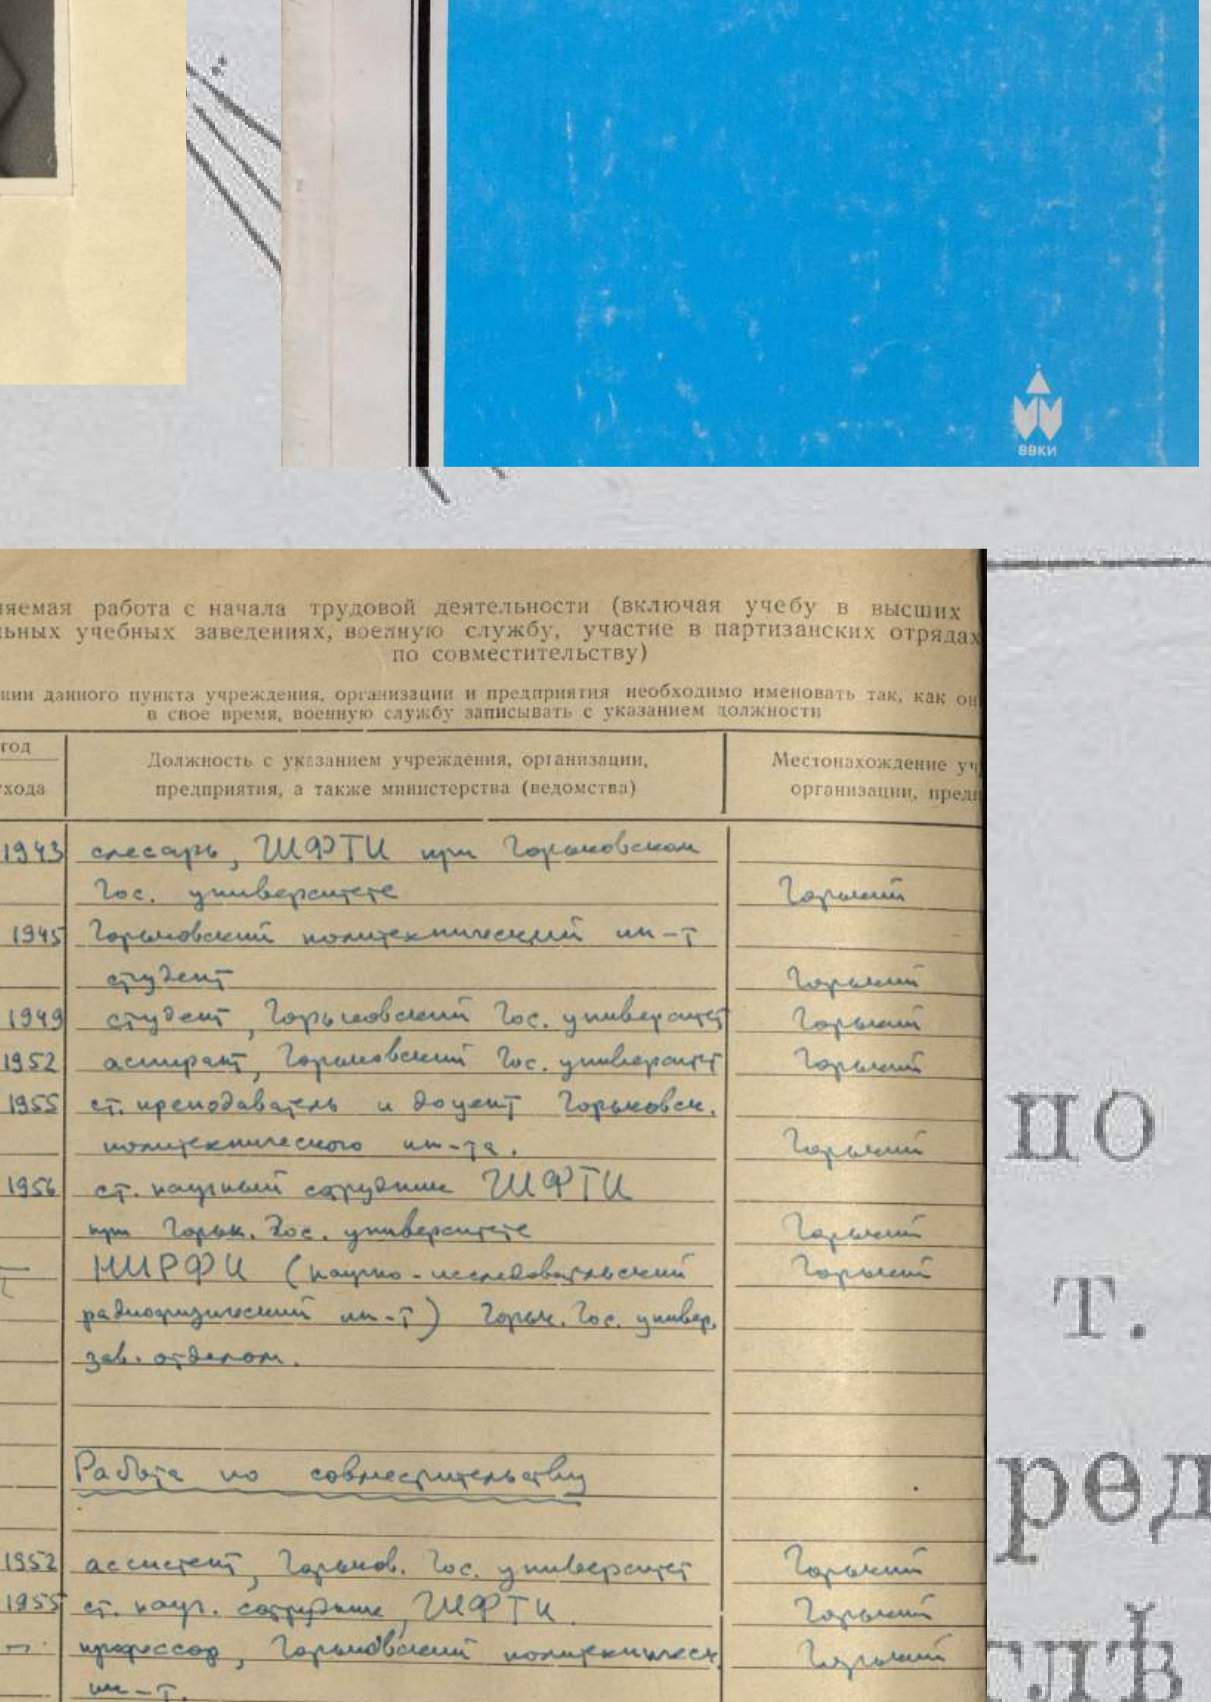 ВВКИ
няемая работа с начала трудовой деятельности (включая учебу в высших
льных учебных заведениях, военную службу, участие в партизанских отрядах
по совместительству)
нии данного пункта учреждения, организации и предприятия необходимо именовать так, как он
в свое время, военную службу записывать с указанием должности
год
хода
Должность с указанием учреждения, организации,
предприятия, а также министерства (ведомства)
Местонахождение уч
организации, предп
1943 слесарь, ГИФТИ при Горьковском
Гос. университете Горький
1945 Горьковский политехнический ин-т
студент Горький
1949 студент, Горьковский Гос. университет Горький
1952 аспирант, Горьковский Гос. университет Горький
1955 ст. преподаватель и доцент Горьковск.
политехнического ин-та. Горький
1956 ст. научный сотрудник ГИФТИ
при Горьк. Гос. университете Горький
НИРФИ (научно-исследовательский Горький
радиофизический ин-т) Горьк. Гос. универ.
зав. отделом.
Работа по совместительству
1952 ассистент, Горьков. Гос. университет Горький
1955 ст. науч. сотрудник, ГИФТИ Горький
профессор, Горьковский политехническ. Горький
ин-т.
по
т.
ред
глѣ